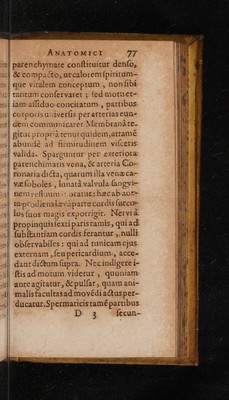 ANATOMICI 77
parenchymate constituitur denso,
& compacto, ut calorem spiritum-
que vitalem conceptum, non sibi
tantum conservaret; sed motu et-
iam assiduo concitatum, partibus
corporis universis per arterias eun-
dem communicaret. Membranâ te-
gitur propriâ tenui quidem, attamē
abundè ad firmitudinem visceris
valida. Sparguntur per exteriora
parenchimatis vena, & arteria Co-
ronaria dicta, quarum illa venæ ca-
væ soboles, lunatâ valvula sangvi-
nem
parte cordis surcu-
los suos magis exporrigit. Nervi à
propinquis sexti paris ramis, qui ad
substantiam cordis ferantur, nulli
observabiles: qui ad tunicam ejus
externam, seu pericardium, acce-
dant dictum supra. Nec indigere i-
stis ad motum videtur, quoniam
ante agitatur, & pulsat, quam ani-
malis facultas ad movēdi actus per-
ducatur. Spermaticis tamē partibus
D 3 secun-